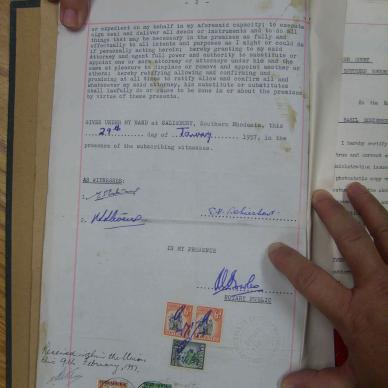 - 2 -
or expedient on my behalf in my aforesaid capacity; to execute
sign seal and deliver all deeds or instruments and to do all
things that may be necessary in the premises as fully and
effectually to all intents and purposes as I might or could do
if personally acting herein; hereby granting to my said
Attorney and agent full power and authority to substitute or
appoint one or more attorney or attorneys under him and the
same at pleasure to displace or remove and appoint another or
others; hereby ratifying allowing and confirming and
promising at all times to ratify allow and confirm all and
whatsoever my said attorney, his substitute or substitutes
shall lawfully do or cause to be done in or about the premises
by virtue of these presents.
GIVEN UNDER MY HAND at SALISBURY, Southern Rhodesia, this
29th day of January 1957, in the
presence of the subscribing witnesses.
AS WITNESSES:
1.
2.
IN MY PRESENCE
NOTARY PUBLIC
Received within the Union
this 9th February, 1957.
I hereby certify
true and correct
photostatic copy